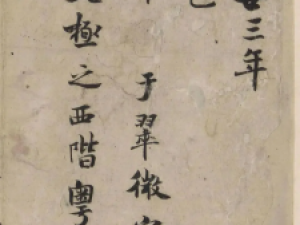 三年
于翠微
極之西階粵